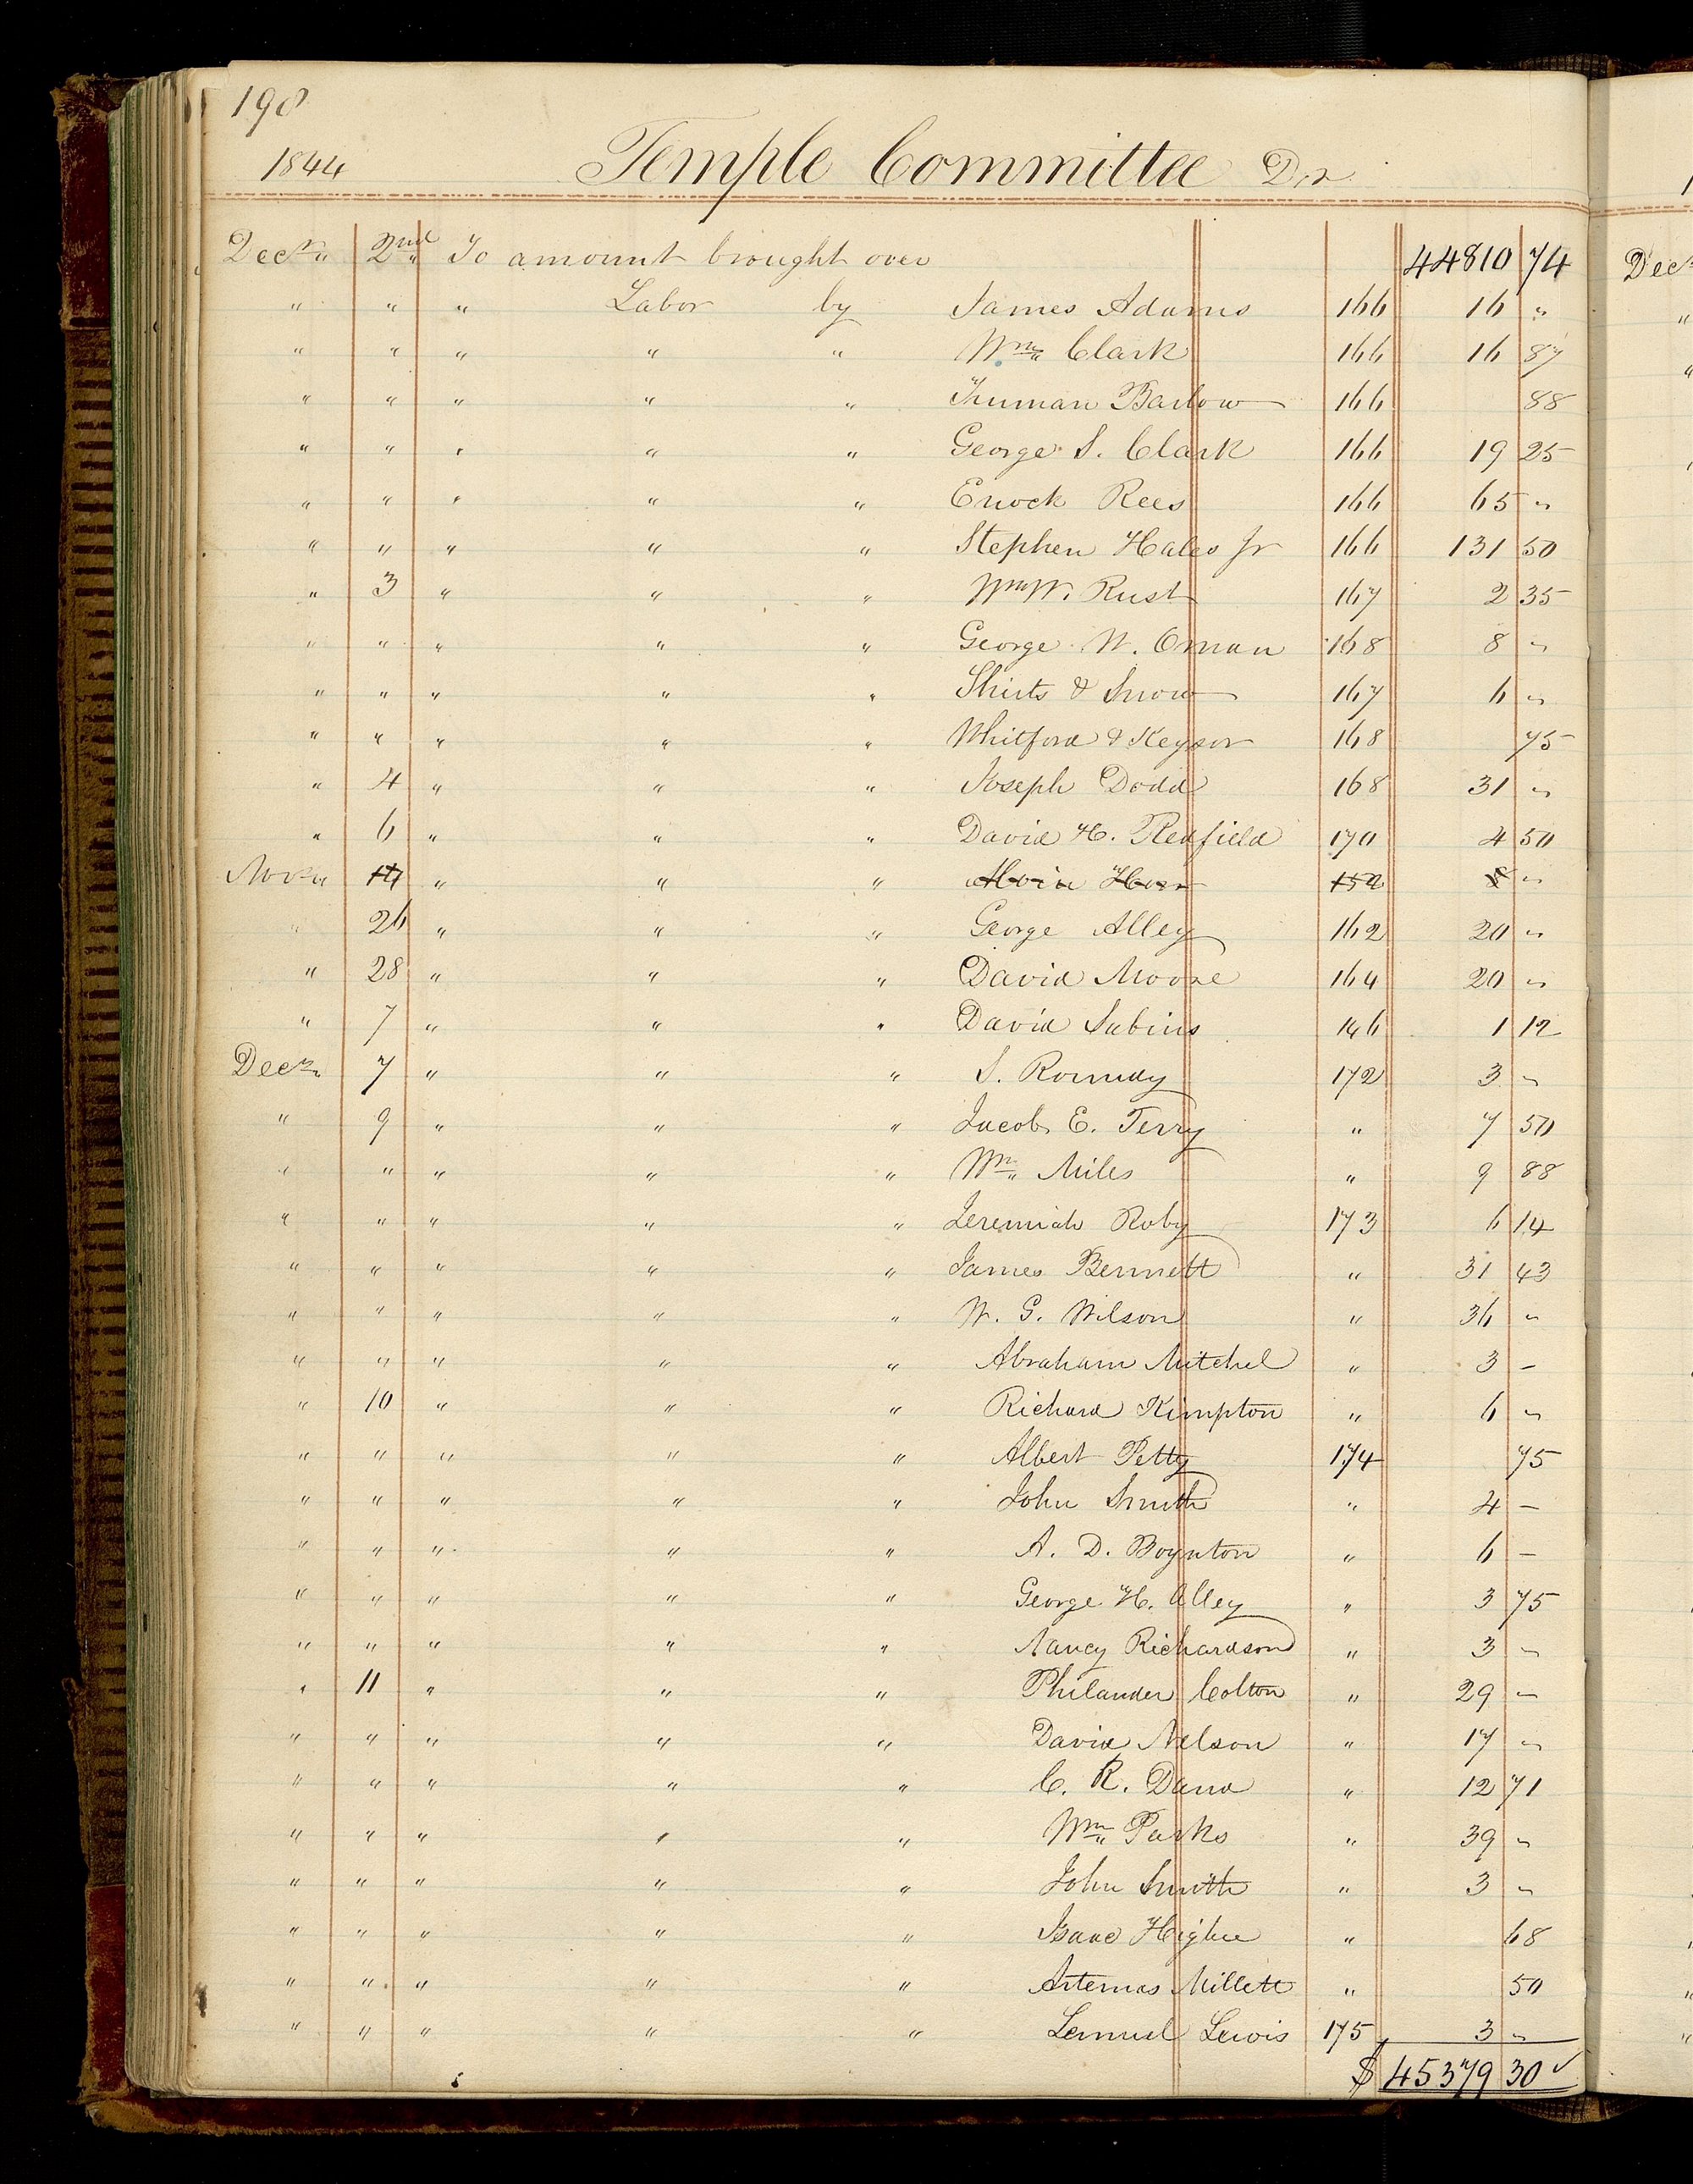 198
1844 Temple Committee Dr.
Decr. 2nd To amount brought over 44810 74
" " " Labor by James Adams 166 16 "
" " " " " Wm. Clark 166 16 87
" " " " " Truman Barlow 166 88
" " " " " George S. Clark 166 19 25
" " " " " Enock Rees 166 65 "
" " " " " Stephen Hales Jr 166 131 50
" 3 " " " Wm W. Rust 167 2 35
" " " " " George W. Oman 168 8 "
" " " " " Shirts & Snow 167 6 "
" " " " " Whitford & Keysor 168 75
" 4 " " " Joseph Dodd 168 31 "
" 6 " " " David H. Redfield 170 4 50
Novr. 14 " " " Alvin Horr 152 8 "
" 26 " " " George Alley 162 20 "
" 28 " " " David Moore 164 20 "
" 7 " " " David Sabins 146 1 12
Decr. 7 " " " S. Roundy 172 3 "
" 9 " " " Jacob E. Terry " 7 50
" " " " " Wm. Miles " 9 88
" " " " " Jeremiah Roby 173 6 14
" " " " " James Bennett " 31 43
" " " " " W. G. Wilson " 36 "
" " " " " Abraham Mitchel " 3 –
" 10 " " " Richard Kimpton " 6 "
" " " " " Albert Petty 174 75
" " " " " John Smith " 4 –
" " " " " A. D. Boynton " 6 –
" " " " " George H. Alley " 3 75
" " " " " Nancy Richardson " 3 "
" 11 " " " Philander Colton " 29 –
" " " " " David Nelson " 17 "
" " " " " C. R. Dana " 12 71
" " " " " Wm. Parks " 39 "
" " " " " John Smith " 3 "
" " " " " Isaac Higbee " 68
" " " " " Artemas Millett " 50
" " " " " Lemuel Lewis 175 3 "
$ 45379 30 ✓
Dec